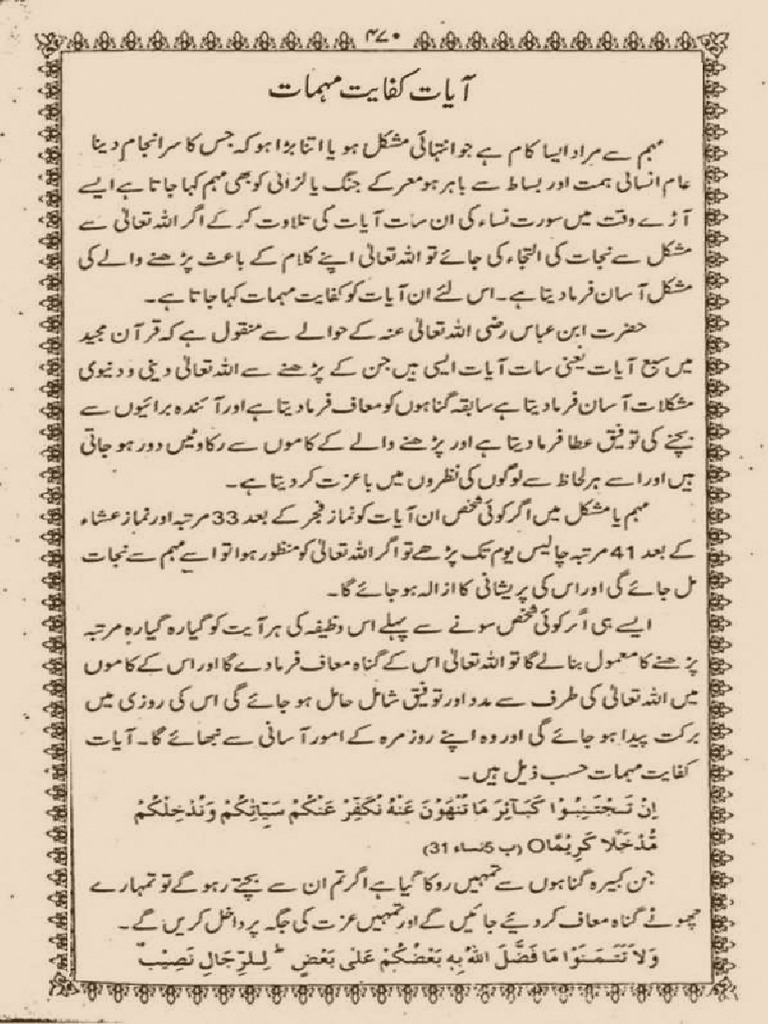 ۴۷۰
آیات کفایت مہمات
مہم سے مراد ایسا کام ہے جو انتہائی مشکل ہو یا اتنا بڑا ہو کہ جس کا سرانجام دینا
عام انسانی ہمت اور بساط سے باہر ہو معرکے جنگ یا لڑائی کو بھی مہم کہا جاتا ہے ایسے
آڑے وقت میں سورت نساء کی ان سات آیات کی تلاوت کر کے اگر اللہ تعالیٰ سے
مشکل سے نجات کی التجاء کی جائے تو اللہ تعالیٰ اپنے کلام کے باعث پڑھنے والے کی
مشکل آسان فرما دیتا ہے۔ اس لئے ان آیات کو کفایت مہمات کہا جاتا ہے۔
حضرت ابن عباس رضی اللہ تعالیٰ عنہ کے حوالے سے منقول ہے کہ قرآن مجید
میں سبع آیات یعنی سات آیات ایسی ہیں جن کے پڑھنے سے اللہ تعالیٰ دینی و دنیوی
مشکلات آسان فرما دیتا ہے سابقہ گناہوں کو معاف فرما دیتا ہے اور آئندہ برائیوں سے
بچنے کی توفیق عطا فرما دیتا ہے اور پڑھنے والے کے کاموں سے رکاوٹیں دور ہو جاتی
ہیں اور اسے ہر لحاظ سے لوگوں کی نظروں میں باعزت کر دیتا ہے۔
مہم یا مشکل میں اگر کوئی شخص ان آیات کو نماز فجر کے بعد 33 مرتبہ اور نماز عشاء
کے بعد 41 مرتبہ چالیس یوم تک پڑھے تو اگر اللہ تعالیٰ کو منظور ہوا تو اسے مہم سے نجات
مل جائے گی اور اس کی پریشانی کا ازالہ ہو جائے گا۔
ایسے ہی اگر کوئی شخص سونے سے پہلے اس وظیفہ کی ہر آیت کو گیارہ گیارہ مرتبہ
پڑھنے کا معمول بنا لے گا تو اللہ تعالیٰ اس کے گناہ معاف فرما دے گا اور اس کے کاموں
میں اللہ تعالیٰ کی طرف سے مدد اور توفیق شامل حال ہو جائے گی اس کی روزی میں
برکت پیدا ہو جائے گی اور وہ اپنے روزمرہ کے امور آسانی سے نبھائے گا۔ آیات
کفایت مہمات حسب ذیل ہیں۔
اِنْ تَجْتَنِبُوْا كَبَآئِرَ مَا تُنْهَوْنَ عَنْهُ نُكَفِّرْ عَنْكُمْ سَيِّاٰتِكُمْ وَنُدْخِلْكُمْ
مُّدْخَلًا كَرِيْمًاO (پ 5 نساء 31)
جن کبیرہ گناہوں سے تمہیں روکا گیا ہے اگر تم ان سے بچتے رہو گے تو تمہارے
چھوٹے گناہ معاف کر دیئے جائیں گے اور تمہیں عزت کی جگہ پر داخل کریں گے۔
وَلَا تَتَمَنَّوْا مَا فَضَّلَ اللهُ بِهٖ بَعْضَكُمْ عَلٰى بَعْضٍ ؕ لِلرِّجَالِ نَصِيْبٌ